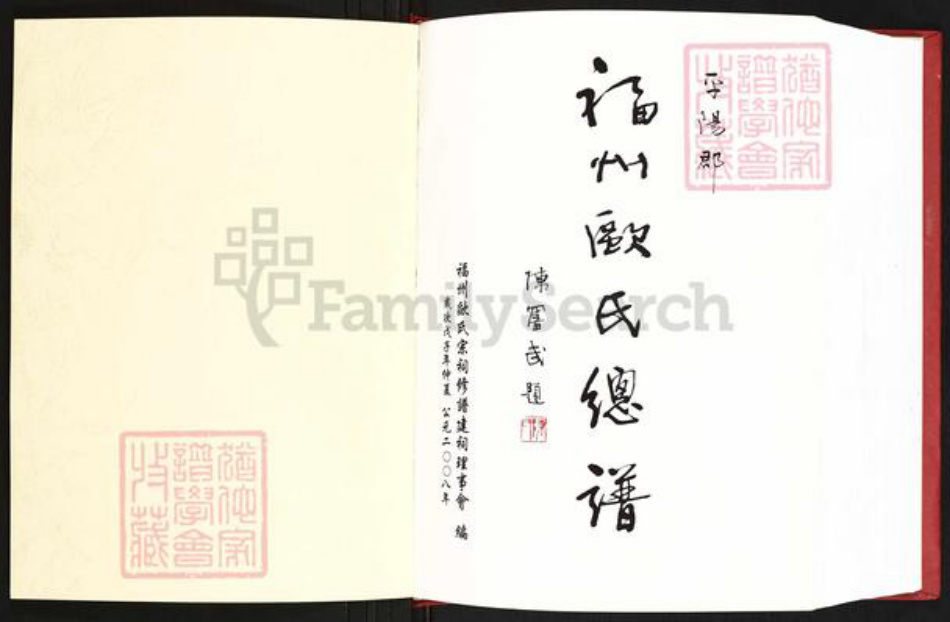 平陽郡
福州歐氏總譜
陳奮武題
福州歐氏宗祠修譜建祠理事會 編
歲次戊子年仲夏 公元二〇〇八年
猶他家譜學會收藏
猶他家譜學會收藏
FamilySearch